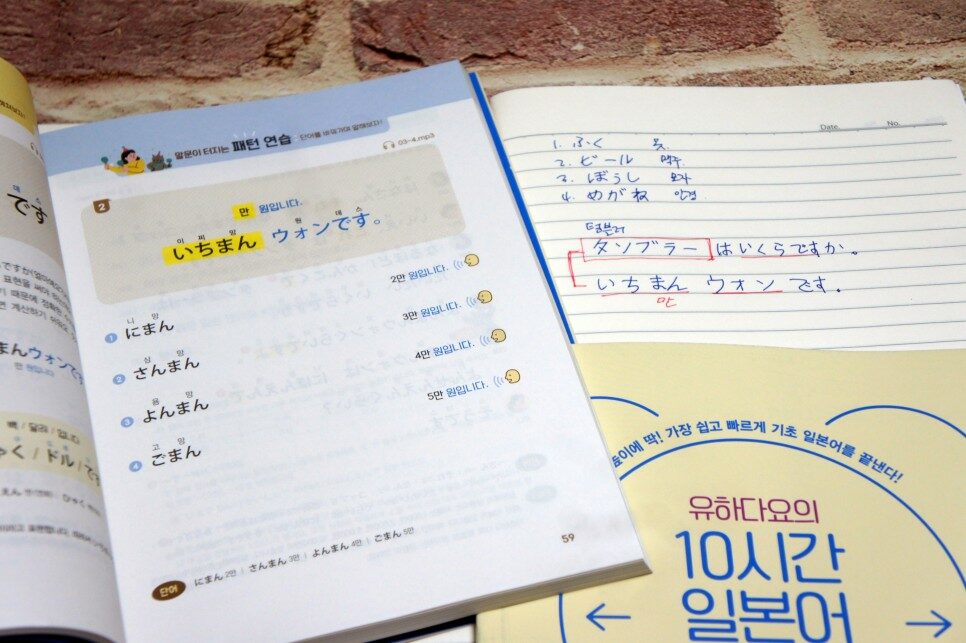 です
まんウォンです
ゃく / ドル / で
말문이 터지는 패턴 연습 · 단어를 바꿔가며 말해보자!
03-4.mp3
2
만 원입니다.
이찌망 원 데스
いちまん ウォンです。
2만 원입니다.
니 망
1 にまん
3만 원입니다.
삼 망
2 さんまん
4만 원입니다.
용 망
3 よんまん
5만 원입니다.
고 망
4 ごまん
59
단어 にまん 2만 | さんまん 3만 | よんまん 4만 | ごまん 5만
Date. No.
1. ふく 옷
2. ビール 맥주
3. ぼうし 모자
4. めがね 안경
텀블러
タンブラー はいくらですか。
いちまん ウォン です。
만
높이에 딱! 가장 쉽고 빠르게 기초 일본어를 끝낸다!
유하다요의
10시간
일본어